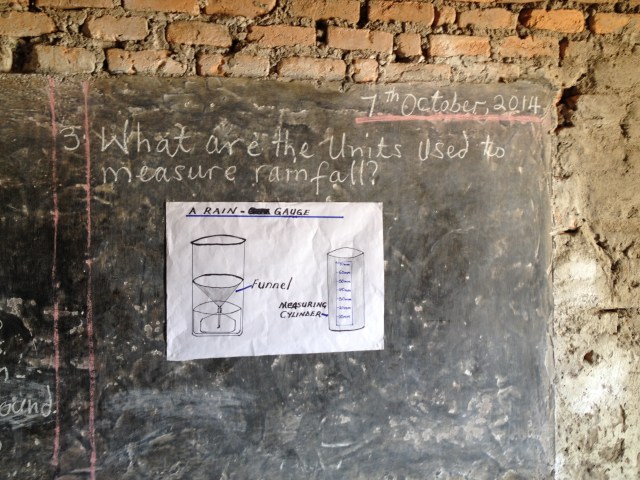 7th October, 2014
3. What are the Units Used to
measure rainfall?
A RAIN - GAUGE
Funnel
MEASURING
CYLINDER
ound.